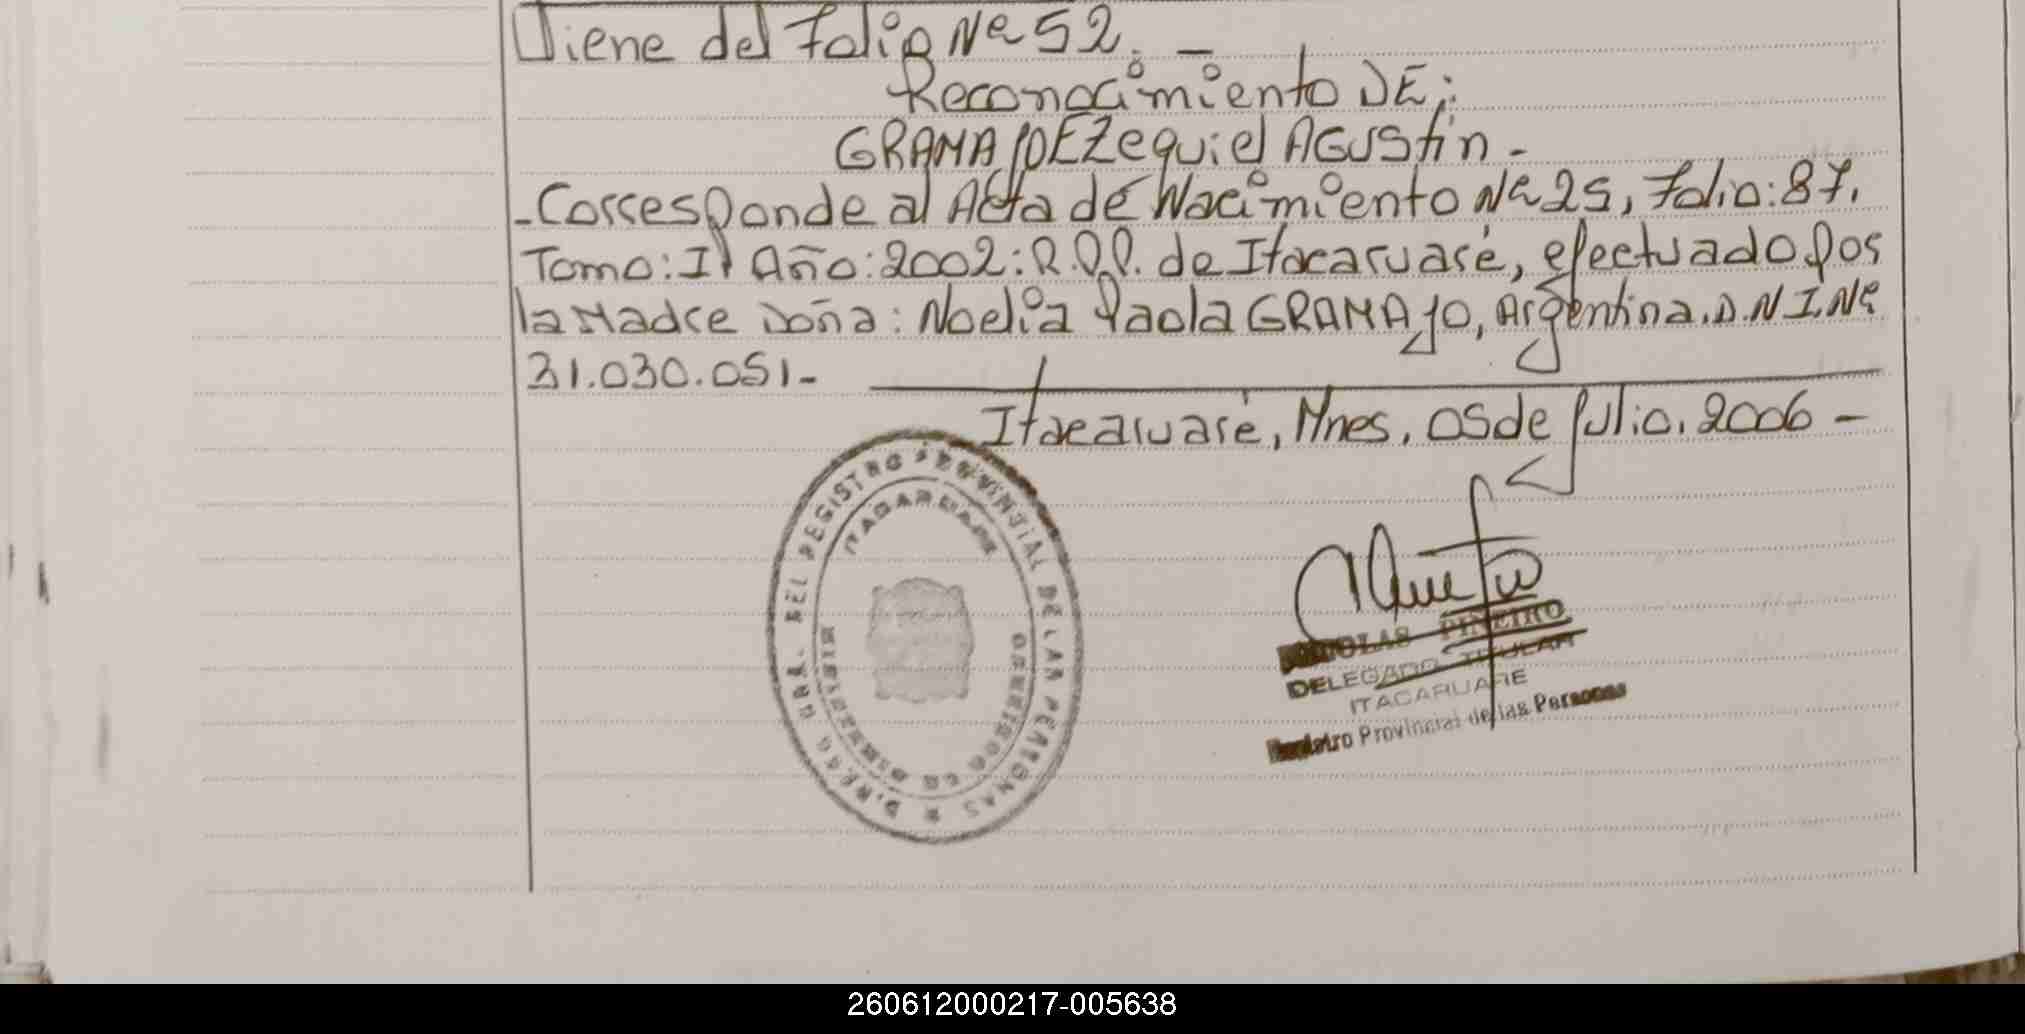 Viene del Folio Nº 52. —
Reconocimiento DE:
GRAMAJO EZequiel AGUStín -
- Corresponde al Acta de Nacimiento Nº 25, Folio: 87,
Tomo: II Año: 2002: R.P.P. de Itacaruaré, efectuado por
la Madre Doña: Noelia Paola GRAMAJO, Argentina. D.N.I. Nº
31.030.051-
Itacaruaré, Mnes, 05 de Julio, 2006 -
DEL REGISTRO PROVINCIAL DE LAS PERSONAS
ITACARUARE
PIÑEIRO
DELEGADO TITULAR
ITACARUARE
Registro Provincial de las Personas
260612000217-005638